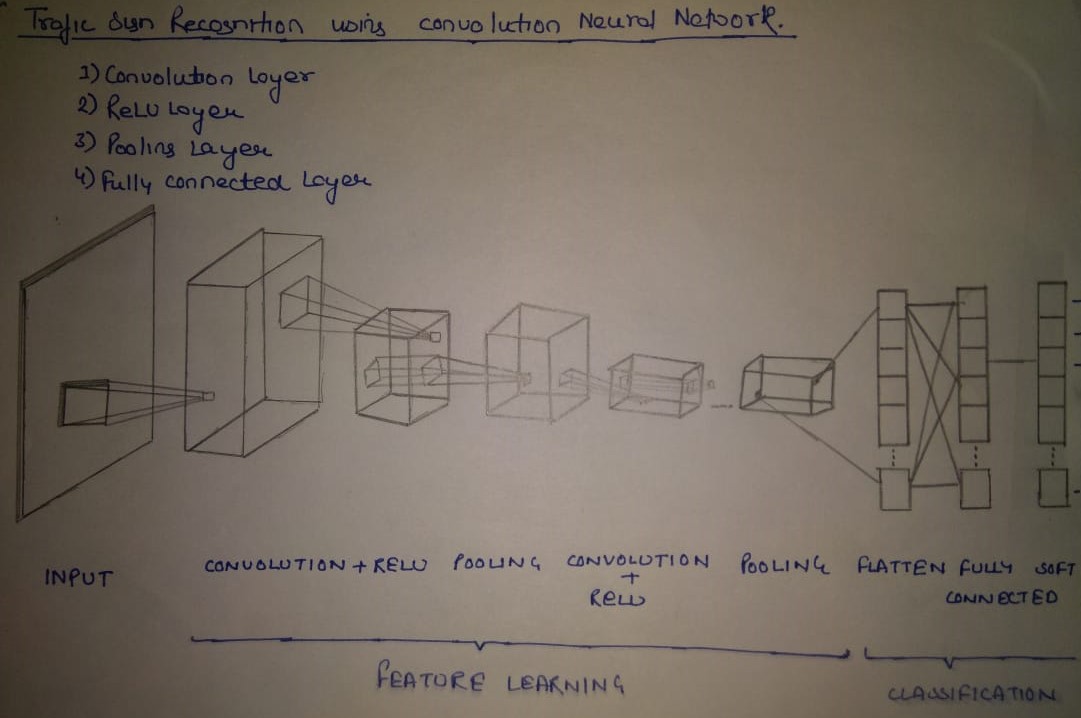 Trafic Sign Recognition using convolution Neural Network.
1) Convolution Layer
2) ReLU Layer
3) Pooling Layer
4) Fully connected Layer
INPUT
CONVOLUTION + RELU
POOLING
CONVOLUTION
+
RELU
POOLING
FLATTEN
FULLY
CONNECTED
SOFT
FEATURE LEARNING
CLASSIFICATION